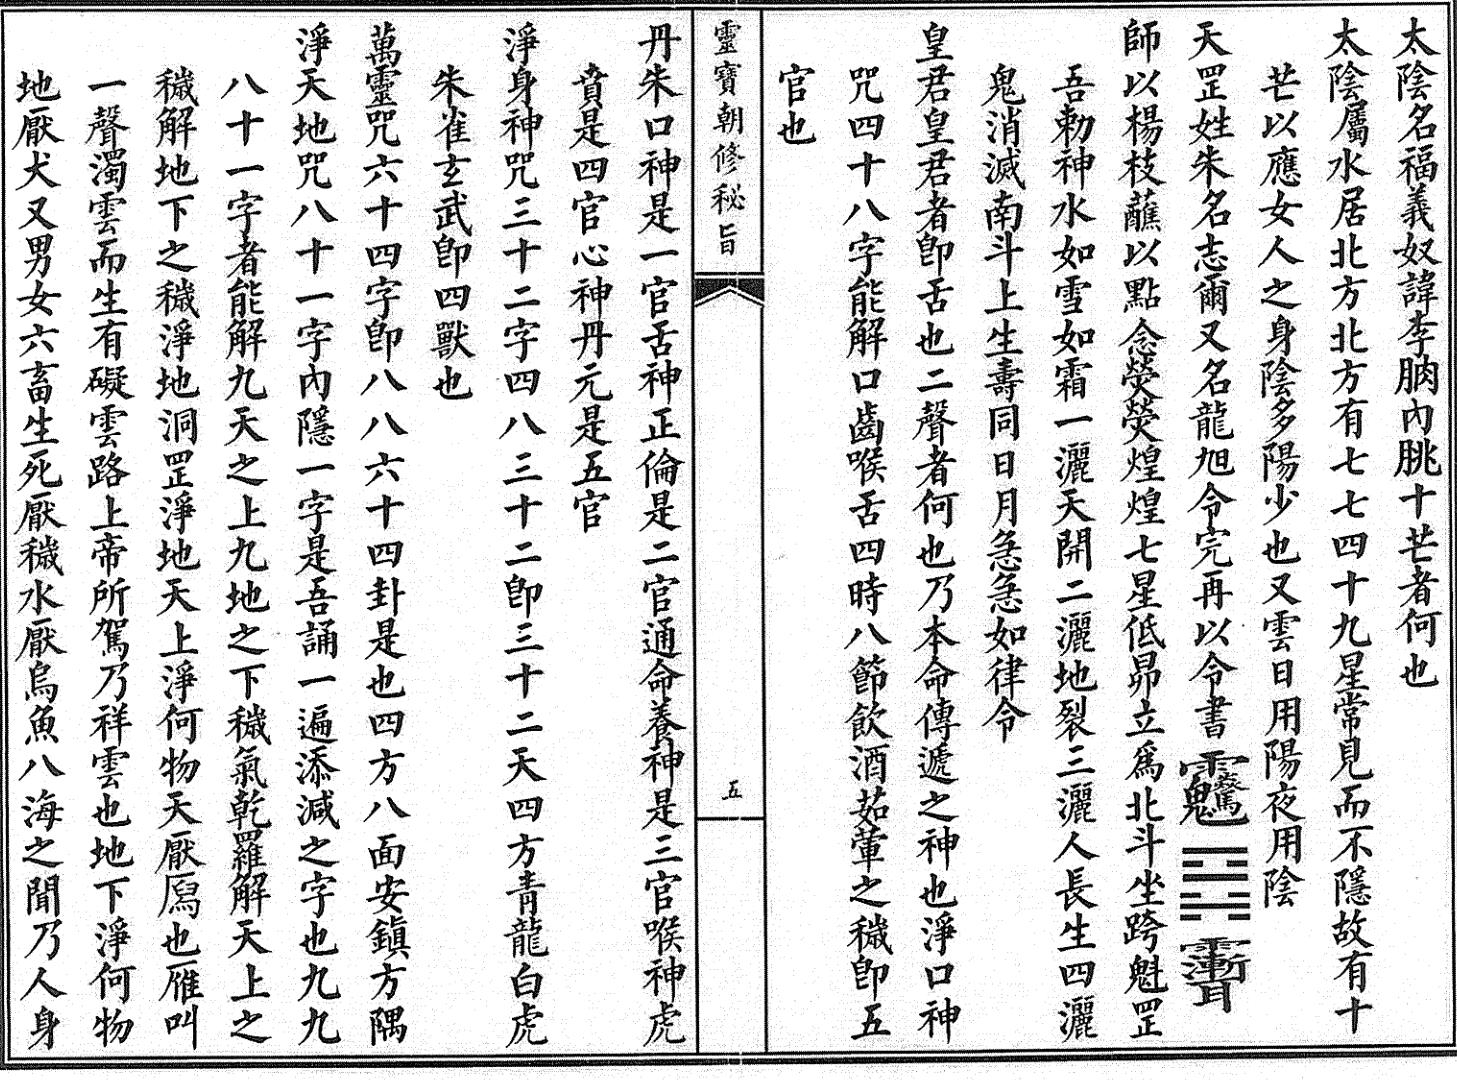 太陰名福義奴諱李朒內朓十芒者何也
太陰屬水居北方北方有七七四十九星常見而不隱故有十
芒以應女人之身陰多陽少也又雲日用陽夜用陰
天罡姓朱名志爾又名龍旭令完再以令書
師以楊枝蘸以點念熒熒煌煌七星低昂立爲北斗坐跨魁罡
吾勅神水如雪如霜一灑天開二灑地裂三灑人長生四灑
鬼消滅南斗上生壽同日月急急如律令
皇君皇君者卽舌也二聲者何也乃本命傳遞之神也淨口神
咒四十八字能解口齒喉舌四時八節飲酒茹葷之穢卽五
官也
靈寶朝修秘旨
五
丹朱口神是一官舌神正倫是二官通命養神是三官喉神虎
賁是四官心神丹元是五官
淨身神咒三十二字四八三十二卽三十二天四方青龍白虎
朱雀玄武卽四獸也
萬靈咒六十四字卽八八六十四卦是也四方八面安鎮方隅
淨天地咒八十一字內隱一字是吾誦一遍添減之字也九九
八十一字者能解九天之上九地之下穢氣乾羅解天上之
穢解地下之穢淨地洞罡淨地天上淨何物天厭鴈也雁叫
一聲濁雲而生有礙雲路上帝所駕乃祥雲也地下淨何物
地厭犬又男女六畜生死厭穢水厭烏魚八海之閒乃人身